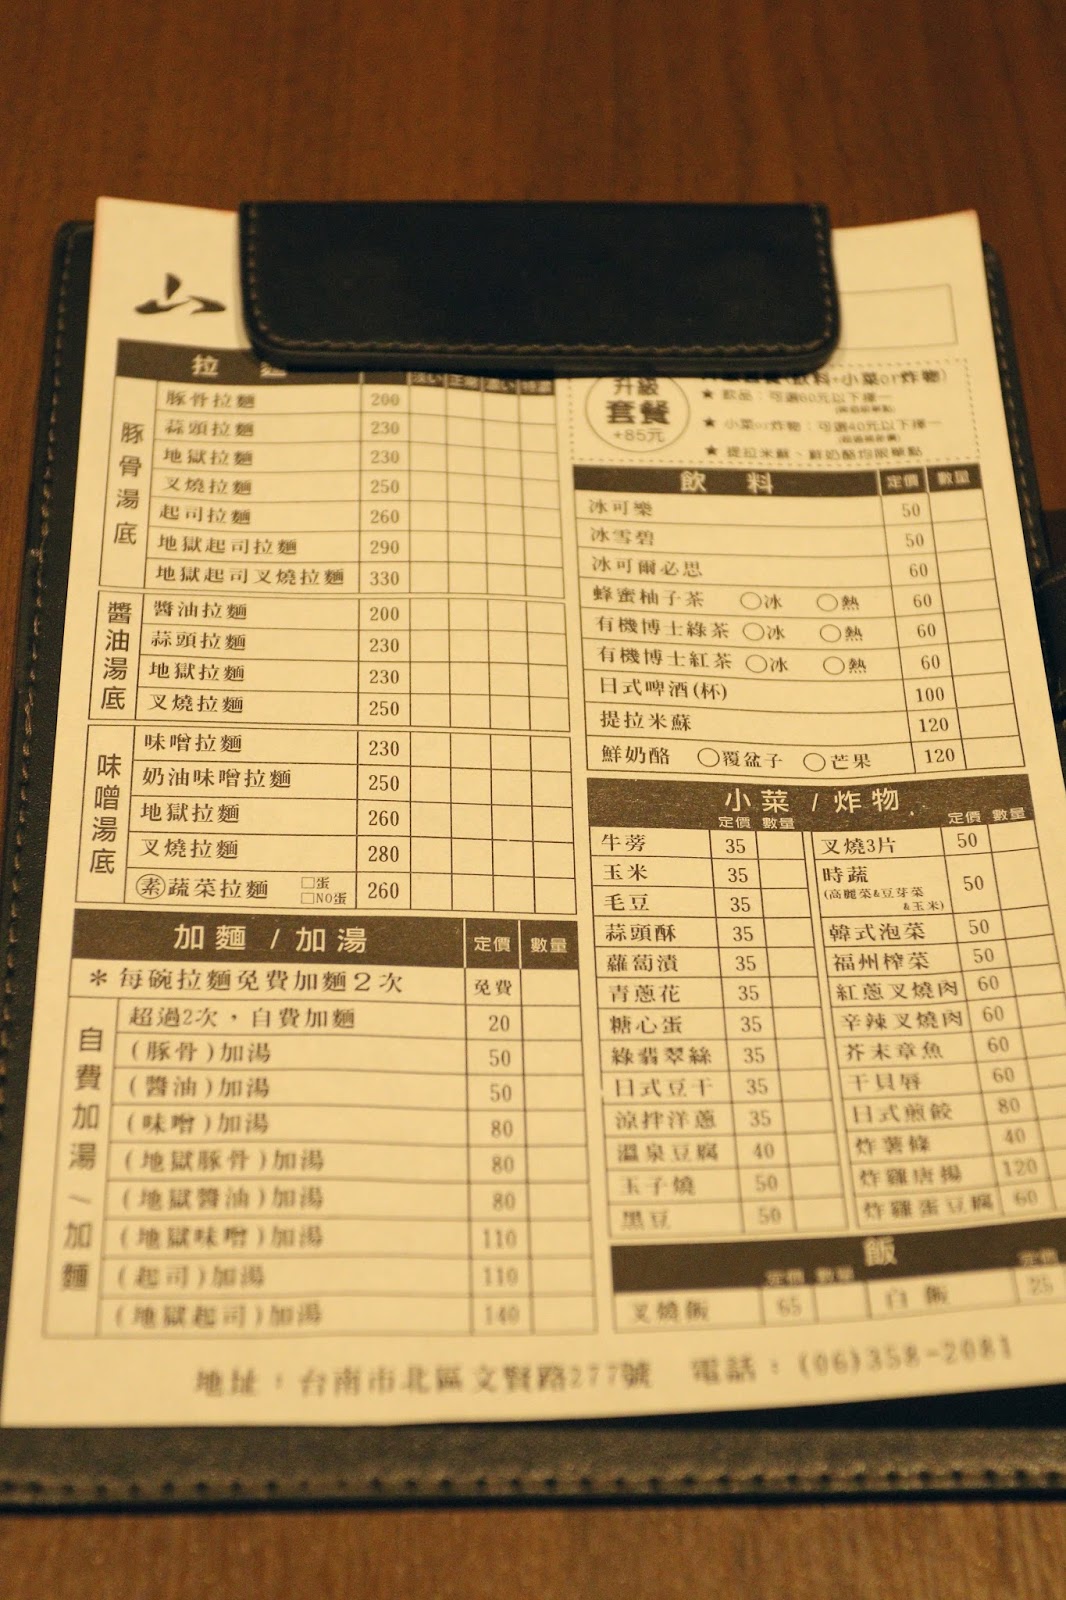 山
拉 麵
豚骨湯底
豚骨拉麵 200
蒜頭拉麵 230
地獄拉麵 230
叉燒拉麵 250
起司拉麵 260
地獄起司拉麵 290
地獄起司叉燒拉麵 330
醬油湯底
醬油拉麵 200
蒜頭拉麵 230
地獄拉麵 230
叉燒拉麵 250
味噌湯底
味噌拉麵 230
奶油味噌拉麵 250
地獄拉麵 260
叉燒拉麵 280
素 蔬菜拉麵 □蛋 □NO蛋 260
加麵 / 加湯 定價 數量
＊每碗拉麵免費加麵2次 免費
自費加湯/加麵
超過2次，自費加麵 20
(豚骨)加湯 50
(醬油)加湯 50
(味噌)加湯 80
(地獄豚骨)加湯 80
(地獄醬油)加湯 80
(地獄味噌)加湯 110
(起司)加湯 110
(地獄起司)加湯 140
升級
套餐
+85元
(飲料+小菜or炸物)
★ 飲品：可選60元以下擇一
★ 小菜or炸物：可選40元以下擇一
★ 提拉米蘇、鮮奶酪均限單點
飲 料 定價 數量
冰可樂 50
冰雪碧 50
冰可爾必思 60
蜂蜜柚子茶 ○冰 ○熱 60
有機博士綠茶 ○冰 ○熱 60
有機博士紅茶 ○冰 ○熱 60
日式啤酒(杯) 100
提拉米蘇 120
鮮奶酪 ○覆盆子 ○芒果 120
小菜 / 炸物
定價 數量 定價 數量
牛蒡 35 叉燒3片 50
玉米 35 時蔬 50
(高麗菜&豆芽菜
&玉米)
毛豆 35
蒜頭酥 35 韓式泡菜 50
蘿蔔漬 35 福州榨菜 50
青蔥花 35 紅蔥叉燒肉 60
糖心蛋 35 辛辣叉燒肉 60
綠翡翠絲 35 芥末章魚 60
日式豆干 35 干貝唇 60
涼拌洋蔥 35 日式煎餃 80
溫泉豆腐 40 炸薯條 40
玉子燒 50 炸雞唐揚 120
黑豆 50 炸雞蛋豆腐 60
飯
定價 數量 定價
叉燒飯 65 白飯 25
地址：台南市北區文賢路277號 電話：(06)358-2081